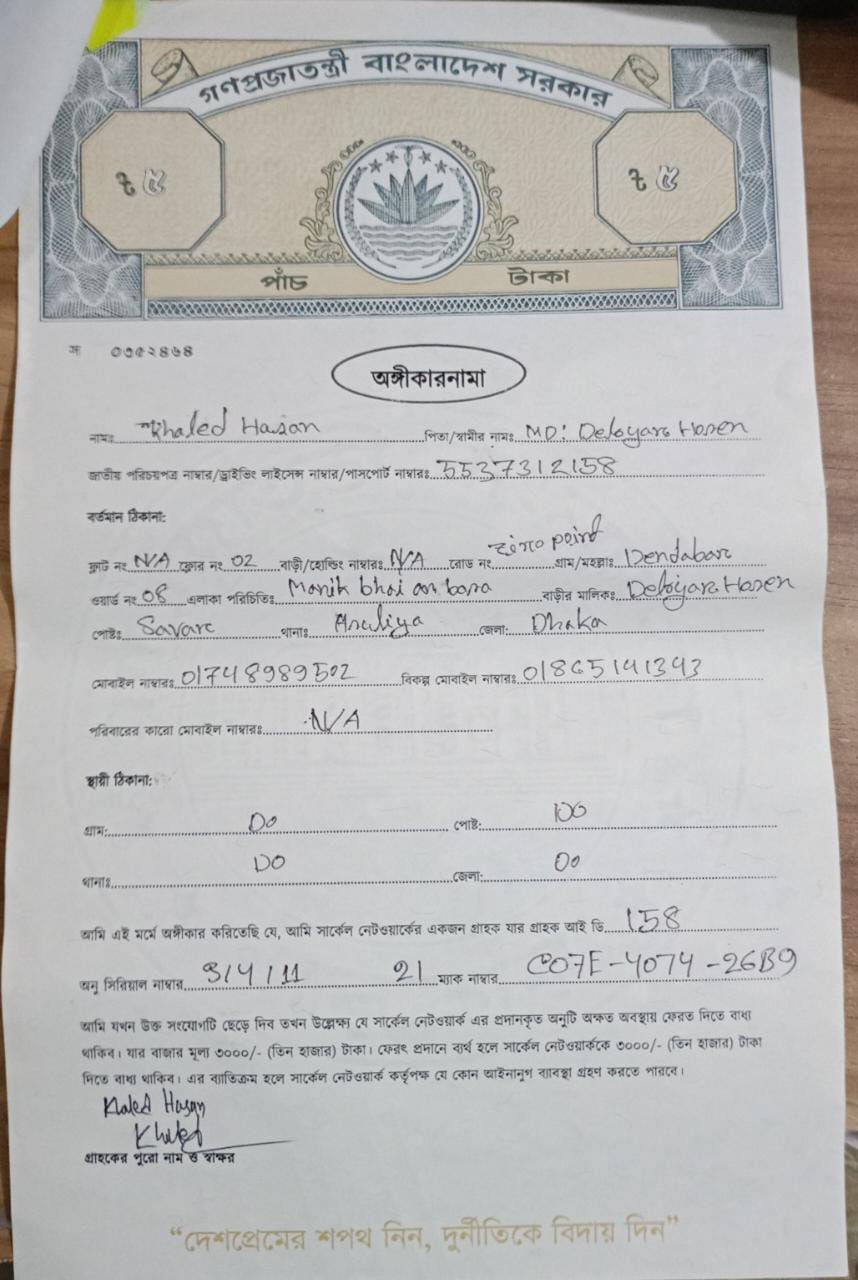 গণপ্রজাতন্ত্রী বাংলাদেশ সরকার
৳ ৫ ৳ ৫
পাঁচ টাকা
অঙ্গীকারনামা
নামঃ Khaled Hasan পিতা/স্বামীর নামঃ MD: Deloyare Hosen
জাতীয় পরিচয়পত্র নাম্বার/ড্রাইভিং লাইসেন্স নাম্বার/পাসপোর্ট নাম্বারঃ 5537312158
বর্তমান ঠিকানা:
ফ্লাট নং N/A ফ্লোর নং 02 বাড়ী/হোল্ডিং নাম্বারঃ N/A রোড নং zero point গ্রাম/মহল্লাঃ Dendabar
ওয়ার্ড নং 08 এলাকা পরিচিতিঃ Manik bhai ar basa বাড়ীর মালিকঃ Deloyare Hosen
পোষ্টঃ Savar থানাঃ জেলা: Dhaka
মোবাইল নাম্বারঃ 01748989502 বিকল্প মোবাইল নাম্বারঃ
পরিবারের কারো মোবাইল নাম্বারঃ N/A
স্থায়ী ঠিকানা:
গ্রাম: DO পোষ্ট: DO
থানাঃ DO জেলা: DO
আমি এই মর্মে অঙ্গীকার করিতেছি যে, আমি সার্কেল নেটওয়ার্কের একজন গ্রাহক যার গ্রাহক আই ডি 158
অনু সিরিয়াল নাম্বার 3/4/11 21 ম্যাক নাম্বার C07E-4074-26B9
আমি যখন উক্ত সংযোগটি ছেড়ে দিব তখন উল্লেক্ষ্য যে সার্কেল নেটওয়ার্ক এর প্রদানকৃত অনুটি অক্ষত অবস্থায় ফেরত দিতে বাধ্য
থাকিব। যার বাজার মূল্য ৩০০০/- (তিন হাজার) টাকা। ফেরৎ প্রদানে ব্যর্থ হলে সার্কেল নেটওয়ার্ককে ৩০০০/- (তিন হাজার) টাকা
দিতে বাধ্য থাকিব। এর ব্যতিক্রম হলে সার্কেল নেটওয়ার্ক কর্তৃপক্ষ যে কোন আইনানুগ ব্যবস্থা গ্রহণ করতে পারবে।
Khaled Hasan
Khaled
গ্রাহকের পুরো নাম ও স্বাক্ষর
“দেশপ্রেমের শপথ নিন, দুর্নীতিকে বিদায় দিন”